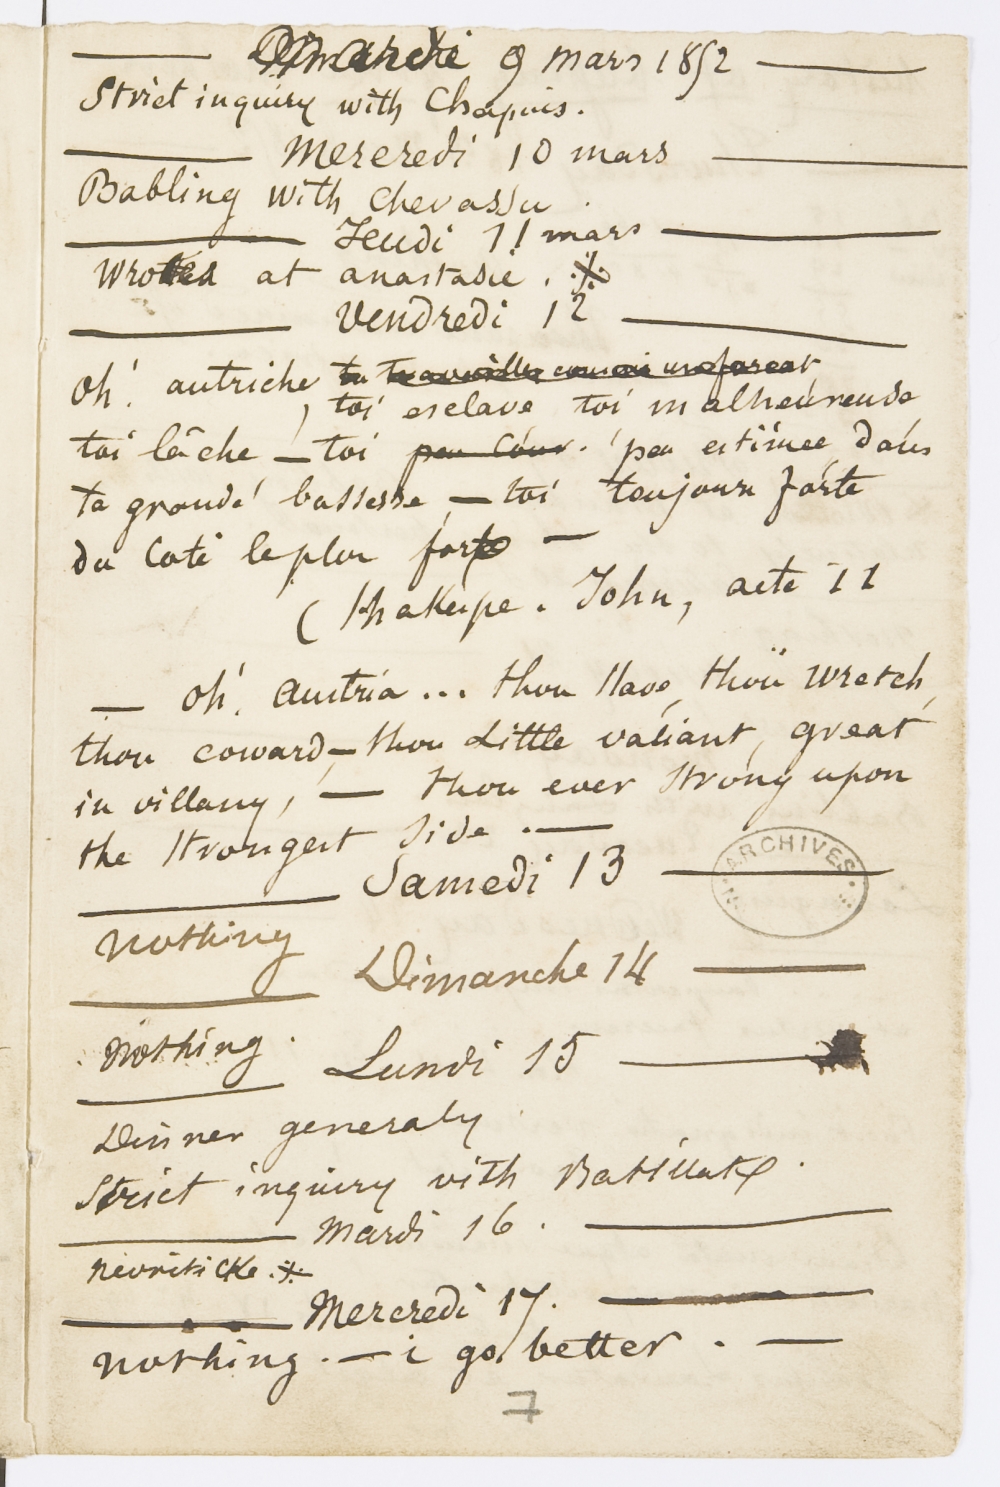 Mardi 9 mars 1852
Strict inquiry with Chapuis.
Mercredi 10 mars
Babling with Chevassu.
Jeudi 11 mars
Wrote at anastasie. ※
Vendredi 12
Oh! autriche, tu travailles comme un forcat
toi esclave toi malheureuse
toi lâche – toi peu Cour. peu estimee dans
ta grande bassesse – toi toujours forte
du Coté le plus fort –
(Shakespe. John, acte 11
— Oh! Austria... thou slave, thou wretch,
thou coward, – thou Little valiant, great
in villany, – thou ever strong upon
the strongest side. –
Samedi 13
ARCHIVES
Nothing
Dimanche 14
Nothing.
Lundi 15
Dinner generaly
Strict inquiry with
Mardi 16.
Nevriticke. ※
Mercredi 17.
nothing. – i go better. –
7